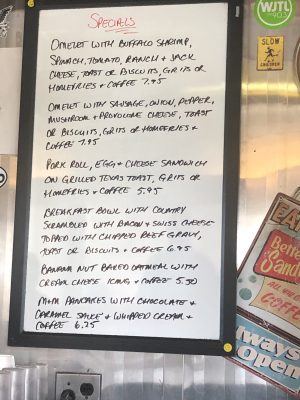 SPECIALS
OMELET WITH BUFFALO SHRIMP,
SPINACH, TOMATO, RANCH & JACK
CHEESE, TOAST OR BISCUITS, GRITS OR
HOMEFRIES & COFFEE 7.95
OMELET WITH SAUSAGE, ONION, PEPPER,
MUSHROOM & PROVOLONE CHEESE, TOAST
OR BISCUITS, GRITS OR HOMEFRIES &
COFFEE 7.95
PORK ROLL, EGG & CHEESE SANDWICH
ON GRILLED TEXAS TOAST, GRITS OR
HOMEFRIES & COFFEE 5.95
BREAKFAST BOWL WITH COUNTRY
SCRAMBLED WITH BACON & SWISS CHEESE
TOPPED WITH CHIPPED BEEF GRAVY,
TOAST OR BISCUITS & COFFEE 6.95
BANANA NUT BAKED OATMEAL WITH
CREAM CHEESE ICING & COFFEE 5.50
M&M PANCAKES WITH CHOCOLATE &
CARAMEL SAUCE & WHIPPED CREAM &
COFFEE 6.25
WJTL
90.3
SLOW
CHILDREN
EA
Bette
Sand
COFF
Always
Open